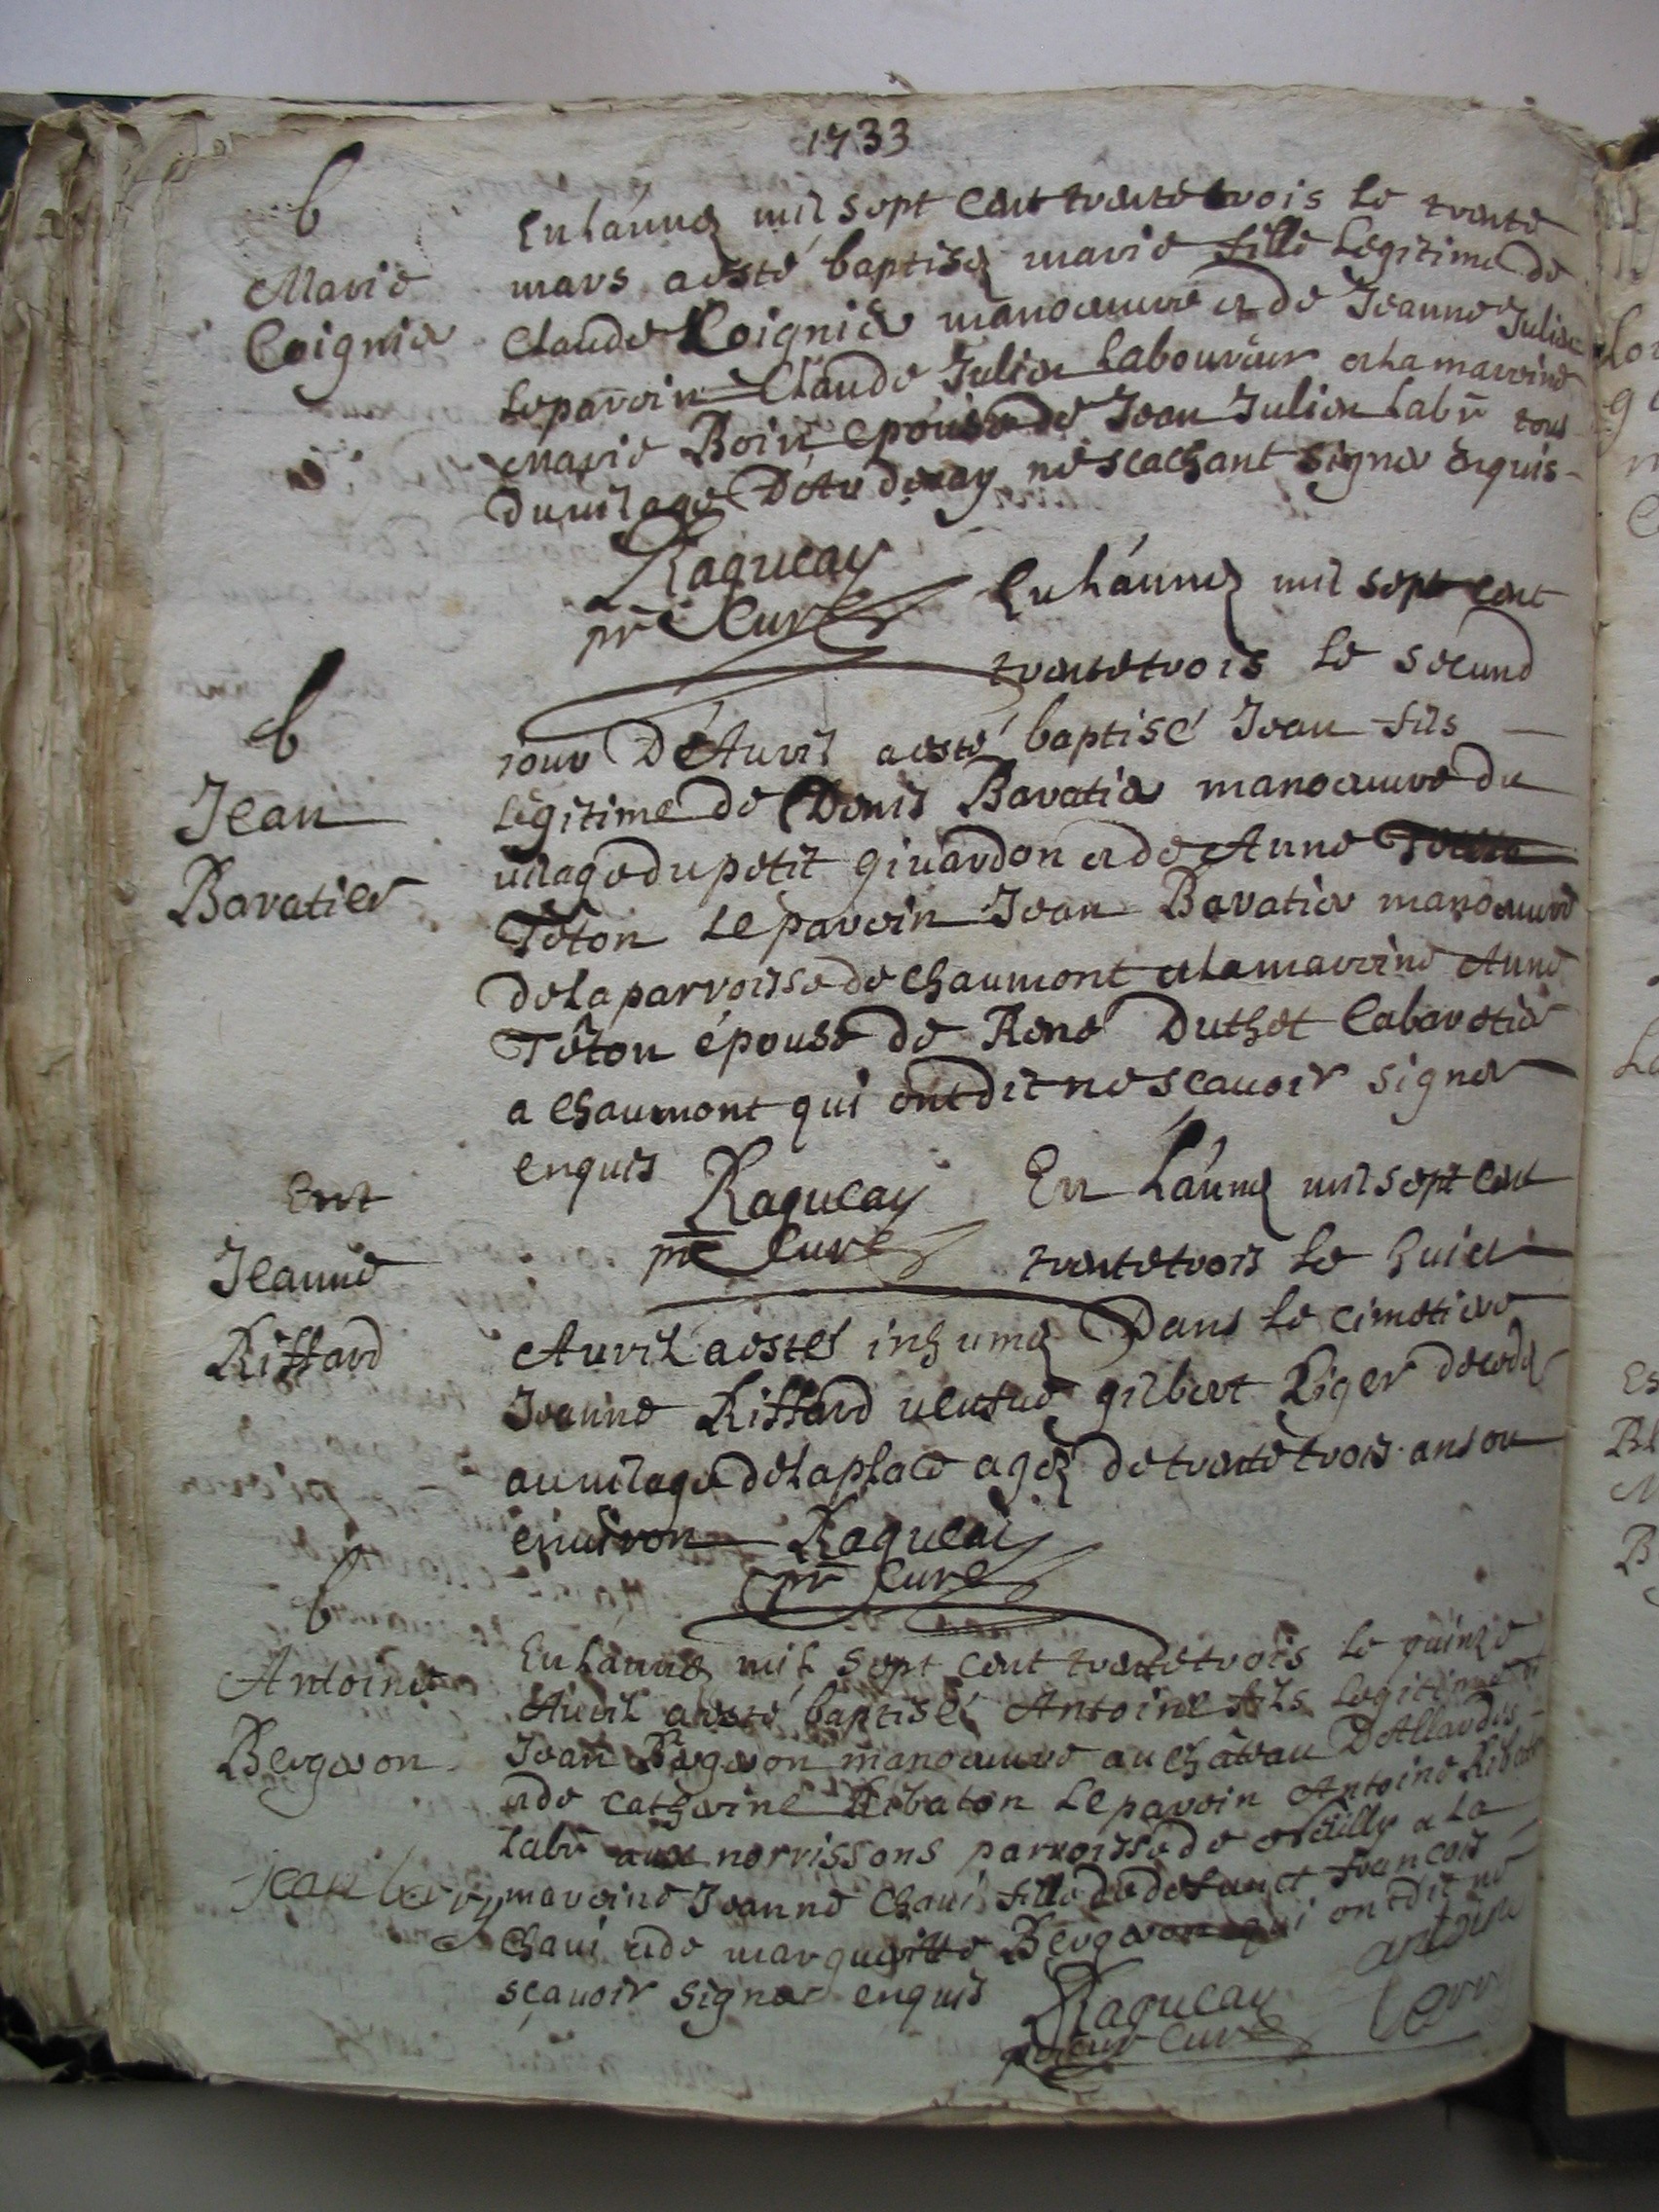 1733
b
Marie
Coignier
En l'année mil sept cent trente trois le trente
mars a esté baptisée marie fille legitime de
Claude Coignier manoeuvre et de Jeanne Julien
le parrein Claude Julien laboureur et la marreine
marie Boire epouse de Jean Julien labr tous
du vilage D'Au ne scachant signer enquis
Raqueay
pr Curé
En l'année mil sept cent
trente trois le second
b
Jean
Baratier
jour D'Avril a esté baptisé Jean fils
légitime de Denis Baratier manoeuvre du
vilage du petit givardon et de Anne
Téton le parein Jean Baratier manoeuvre
de la parroisse de chaumont et la marreine Anne
Téton épouse de René Duthet Cabaretier
a chaumont qui ont dit ne scavoir signer
enquis
Raqueay
pr Curé
En l'année mil sept cent
trente trois le huict
Ent
Jeanne
Riffard
Avril a estée inhumée Dans le cimetiere
Jeanne Riffard veufve gilbert Riger decedée
au vilage de la place agée de trente trois ans ou
environ
Raqueai
pr Curé
b
Antoine
Bergeron
En l'année mil sept cent trente trois le quinze
Avril a esté baptisé Antoine fils legitime de
Jean Bergeron manoeuvre au château D'Allardes
et de catherine Ribaton le parein Antoine
labr aux norrissons parroisse de a la
mareine Jeanne Chavi fille de defunct francois
Chavi et de margueritte Bergeron qui ont dit ne
scavoir signer enquis
jean
antoine
Raqueay
prieur Curé